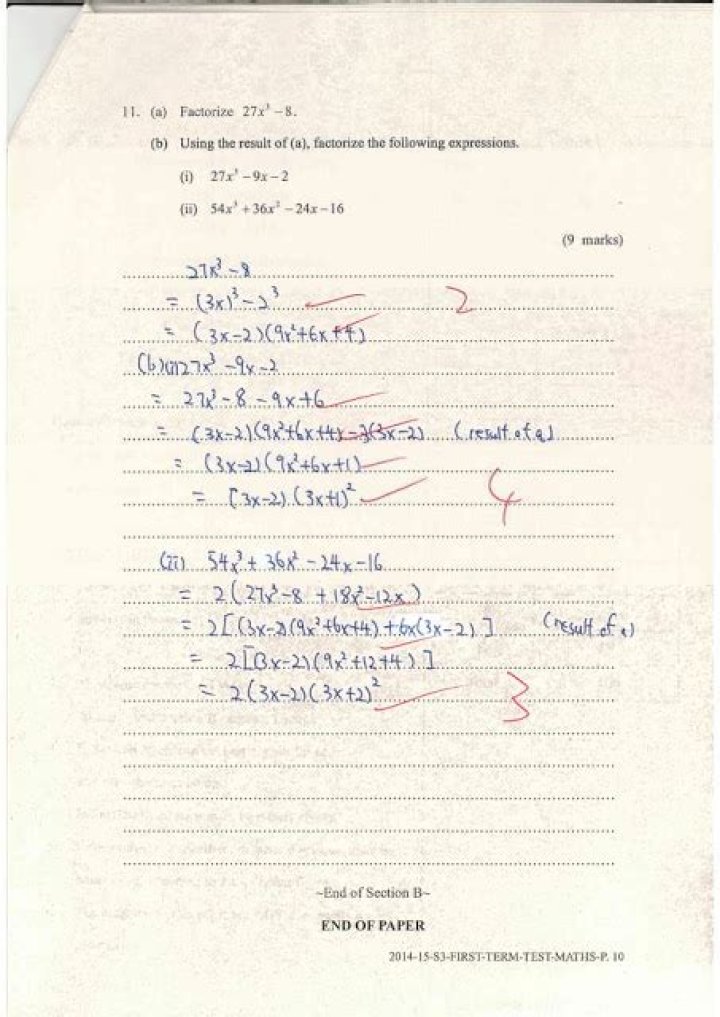 11. (a) Factorize 27x³ – 8.
(b) Using the result of (a), factorize the following expressions.
(i) 27x³ – 9x – 2
(ii) 54x³ + 36x² – 24x – 16
(9 marks)
27x³ – 8
= (3x)³ – 2³
2
= (3x–2)(9x²+6x+4)
(b)(i) 27x³ – 9x – 2
= 27x³ – 8 – 9x + 6
= (3x–2)(9x²+6x+4) – 3(3x–2) (result of a)
= (3x–2)(9x²+6x+1)
= (3x–2)(3x+1)²
4
(ii) 54x³ + 36x² – 24x – 16
= 2(27x³–8 + 18x²–12x)
= 2[(3x–2)(9x²+6x+4) + 6x(3x–2)] (result of a)
= 2[(3x–2)(9x²+12+4)]
= 2(3x–2)(3x+2)²
3
~End of Section B~
END OF PAPER
2014-15-S3-FIRST-TERM-TEST-MATHS-P. 10